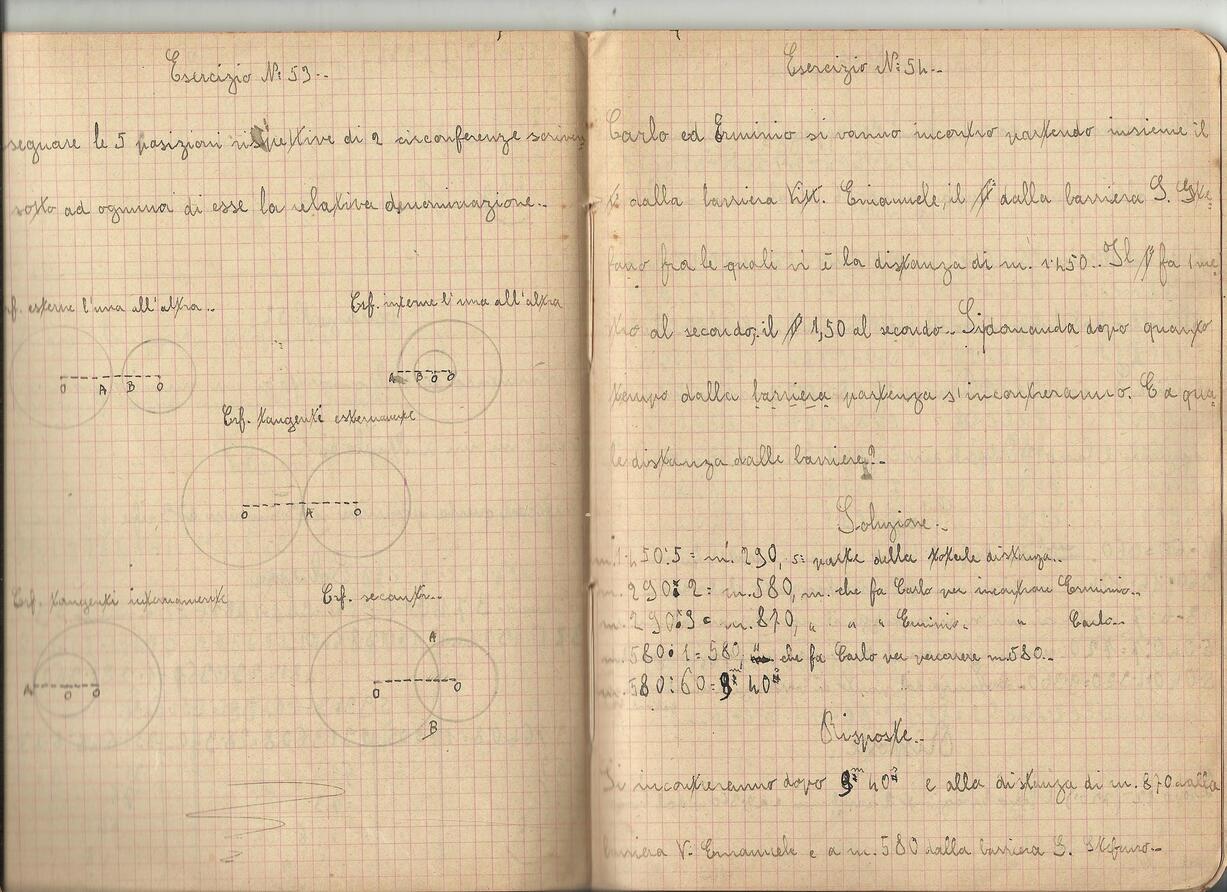 Esercizio N: 53..
segnare le 5 posizioni rispettive di 2 circonferenze scriven
sotto ad ognuna di esse la relativa denominazione..
rf. esterne l'una all'altra..
Crf. interne l'una all'altra
O A B O
A B O O
Crf. tangenti esternamente
O A O
Crf. tangenti internamente
Crf. secanti..
A
A O O
O O
B
Esercizio N: 54..
Carlo ed Erminio si vanno incontro partendo insieme il
1° dalla barriera Vitt. Emanuele, il dalla barriera S. Ste=
fano fra le quali vi è la distanza di m. 1450.. Il fa 1 me
tro al secondo; il 1,50 al secondo.. Si domanda dopo quanto
tempo dalla barriera partenza s'incontreranno. E a qua
le distanza dalle barriere?..
Soluzione..
m. 1450:5 = m. 290, 5: parte della totale distanza..
m. 290 2 = m. 580, m. che fa Carlo per incontrare Erminio..
m. 290 3 = m. 870, " " " Erminio.. " Carlo..
m. 580:1 = 580, che fa Carlo per percorrere m 580..
m. 580:60 = 9m 40s
Risposte..
Si incontreranno dopo 9m 40s e alla distanza di m. 870 dalla
barriera V. Emanuele e a m. 580 dalla barriera S. Stefano..